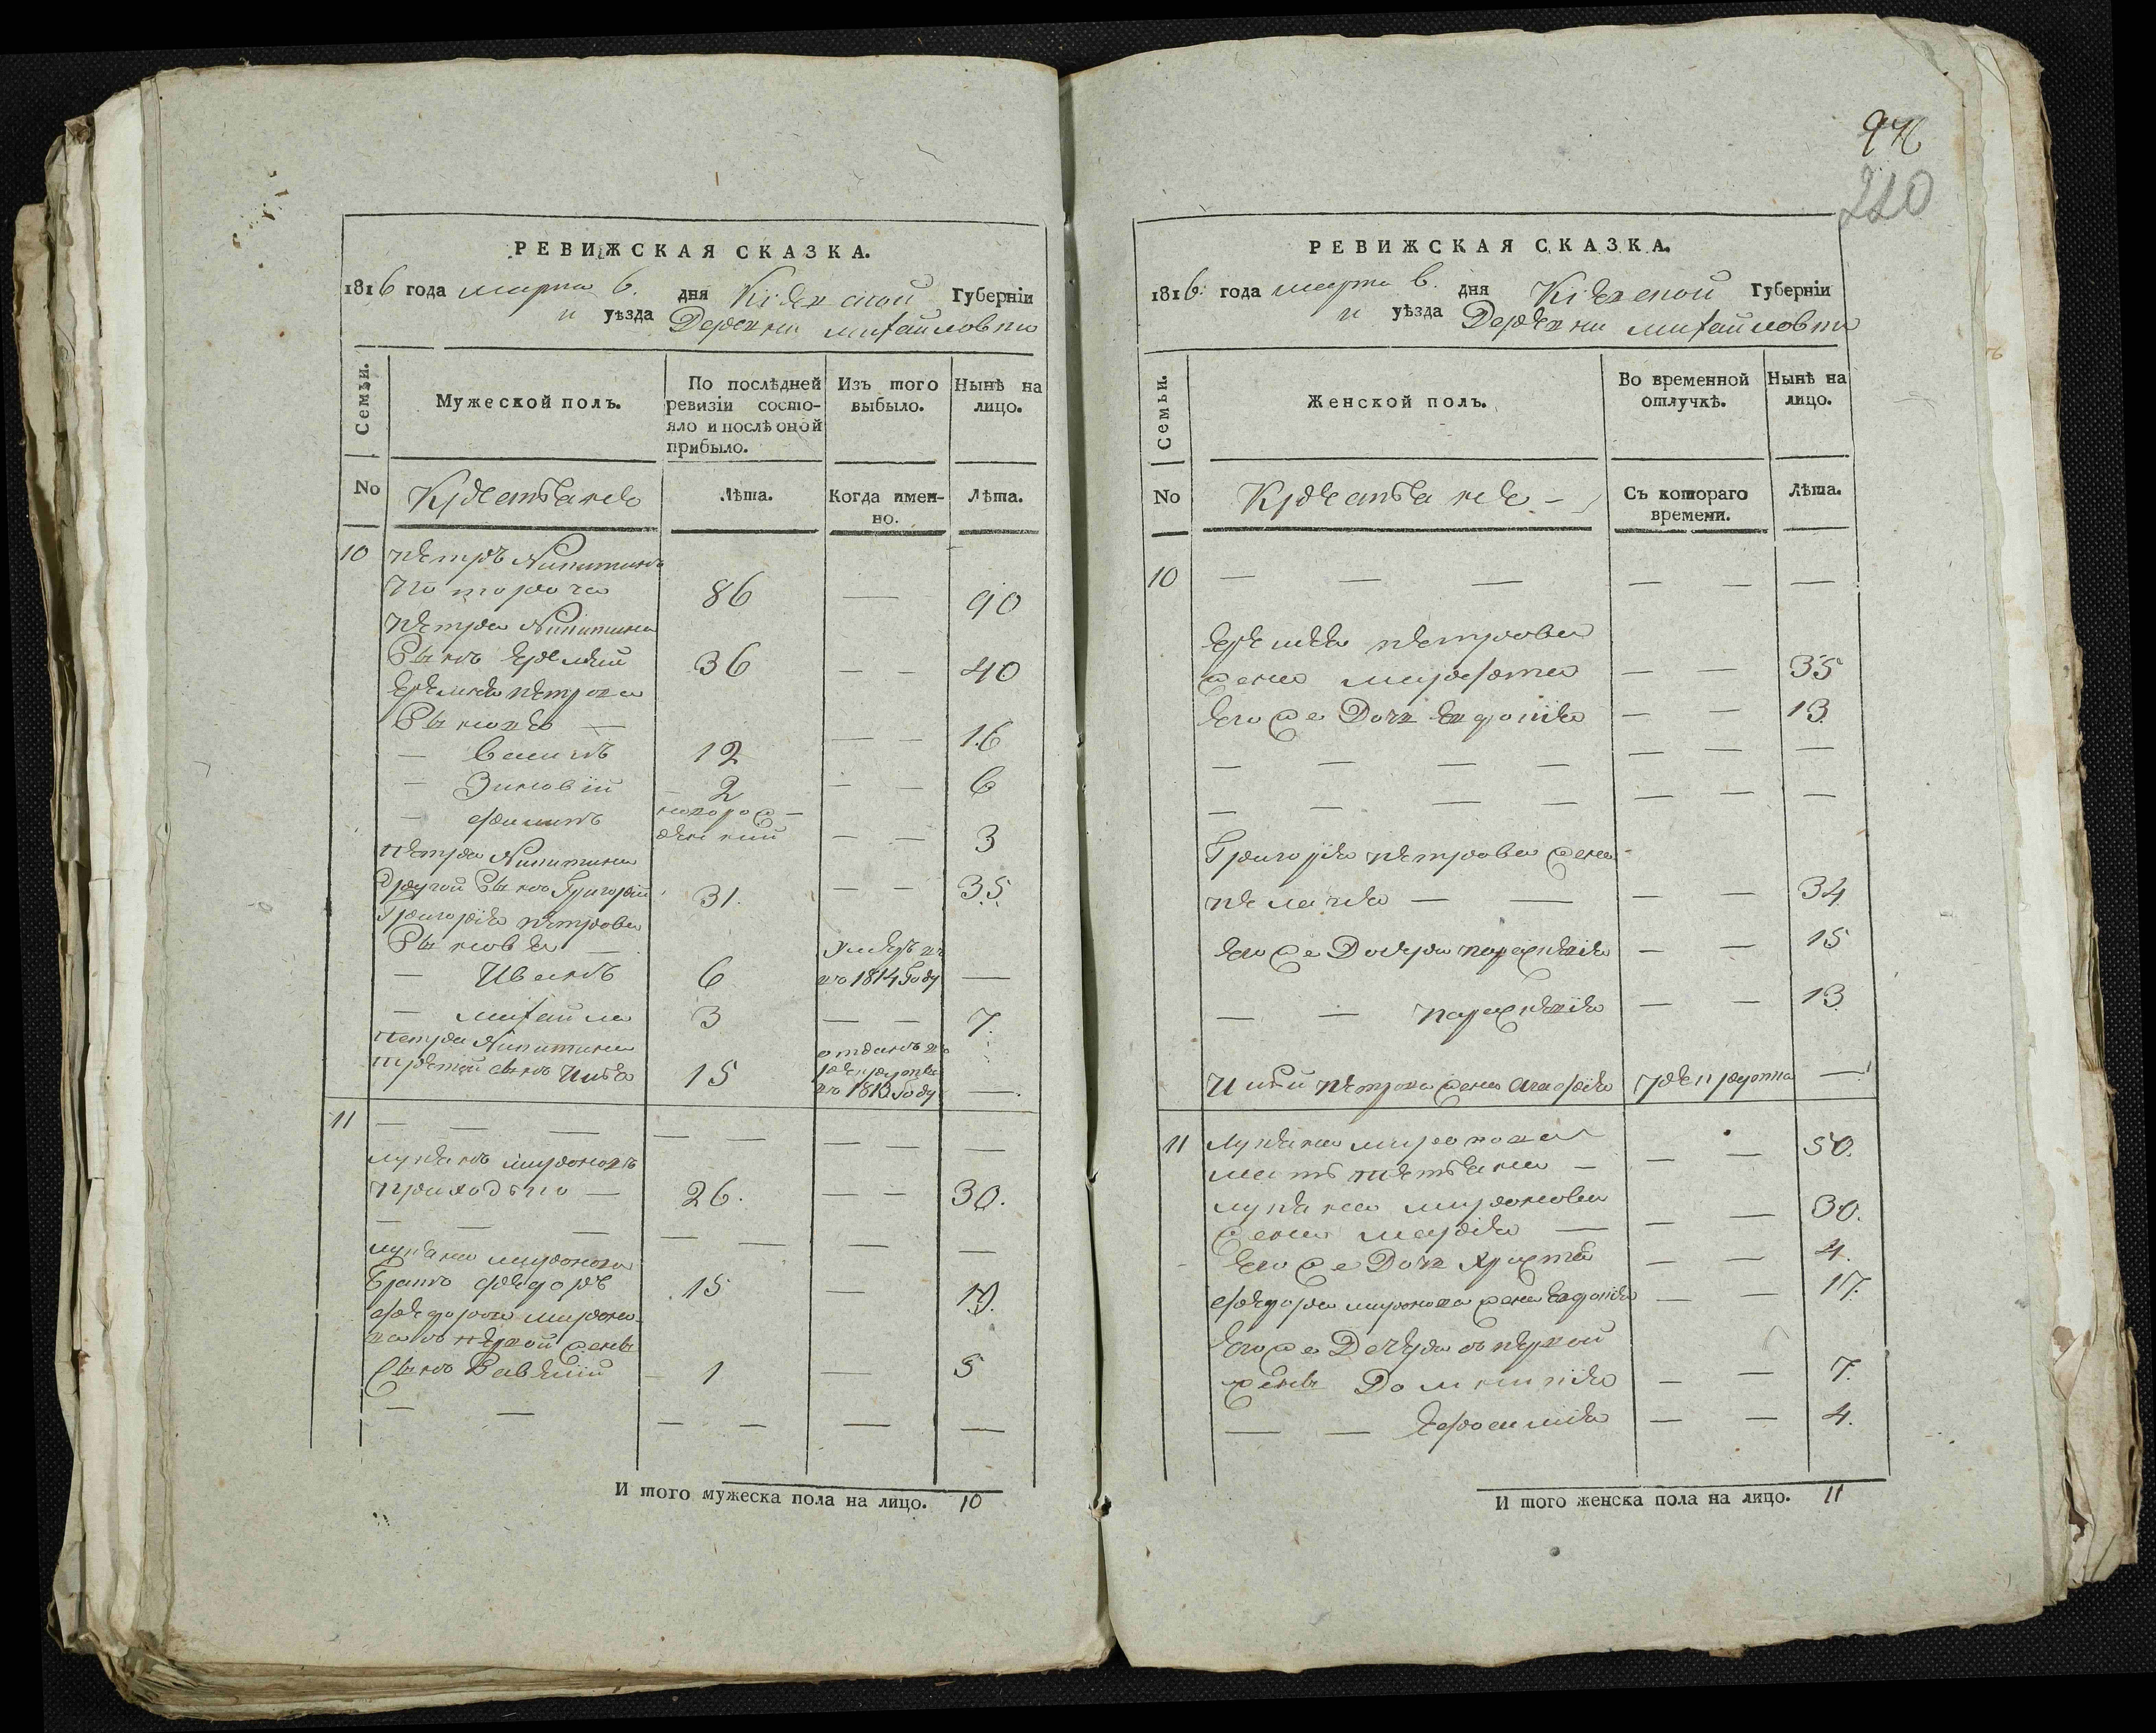 РЕВИЖСКАЯ СКАЗКА.
1816 года марта 6. дня Кіевской Губерніи
и уѣзда Деревни михайловки
Семьи.
Мужеской полъ.
По послѣдней ревизіи состо-
яло и послѣ оной
прибыло.
Изъ того
выбыло.
Нынѣ на
лицо.
No
Крестьяне
Лѣта.
Когда имен-
но.
Лѣта.
10 петръ Никитинъ
86 — 90
петра Никитина
Сынъ еремѣй 36 — — 40
еремѣя петрова
Сыновья —
— 12 — — 16
— Зиновій — 2 — — 6
— филипъ новорож-
денный — — 3
петра Никитина
другой Сынъ Григорій 31. — — 35.
Григорія петрова
Сыновья —
— Иванъ 6 умеръ въ
въ 1814 Году —
— михайла 3 — — 7.
петра Никитина
третій сынъ 15 отданъ въ
рекруты
въ 1813 Году —.
11 — — — — — — — —
лукьянъ мироновъ
26. — — 30.
— — — — — — — —
лукьяна миронова
братъ федоръ 15 — 19.
федора мироно-
ва съ первой жены
Сынъ Савелій 1 — 5
— — — — — —
И того мужеска пола на лицо. 10
976
220
РЕВИЖСКАЯ СКАЗКА.
1816. года марта 6. дня Кіевской Губерніи
и уѣзда Деревни михайловки
Семьи.
Женской полъ.
Во временной
отлучкѣ.
Нынѣ на
лицо.
No
Крестьяне —
Съ котораго
времени.
Лѣта.
10 — — — — — —
еремѣя петрова
жена марфа — — 35
его же Дочь евдокія — — 13.
— — — — — — —
— — — — — — —
Григорія петрова жена
пелагия — — — — 34
его же Дочери параскевія — — 15
— — параскевія — — 13
петрова жена агафія рекрутка —
11 лукьяна миронова
мать тетьяна — — — 50.
лукьяна миронова
жена марія — — — 30.
его же Дочь — — 4.
федора миронова жена евдокія — — 17.
его же Дочери съ первой
жены Домникія — — 7.
— — ефросинія — — 4.
И того женска пола на лицо. 11